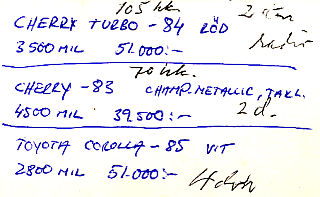 105 hk. 2 d
CHERRY TURBO - 84 RÖD radio
3500 MIL 51.000:-
70 hk.
CHERRY - 83 CHAMP. METALLIC, TAKL.
4500 MIL 39.500:- 2 d.
TOYOTA COROLLA - 85 VIT
2800 MIL 51.000:- 4 dörr